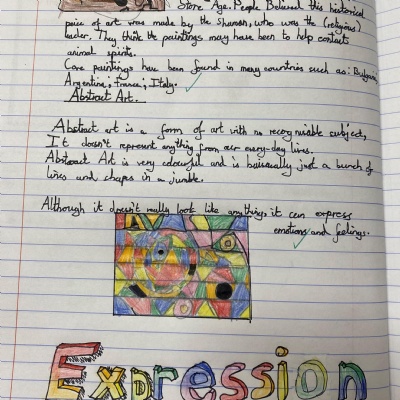 Stone Age. People Believed this historical
peice of art was made by the Shaman, who was the (religious)
leader. They think the paintings may have been to help contact
animal spirits.
Cave paintings have been found in many countries such as: Bulgaria,
Argentina, France, Italy.
Abstract Art.
Abstract art is a form of art with no recognisable subject,
It doesn't represent anything from our every-day lives.
Abstract Art is very colourful and is basically just a bunch of
lines and shapes in a jumble.
Although it doesn't really look like anything, it can express
emotions and feelings.
Expression